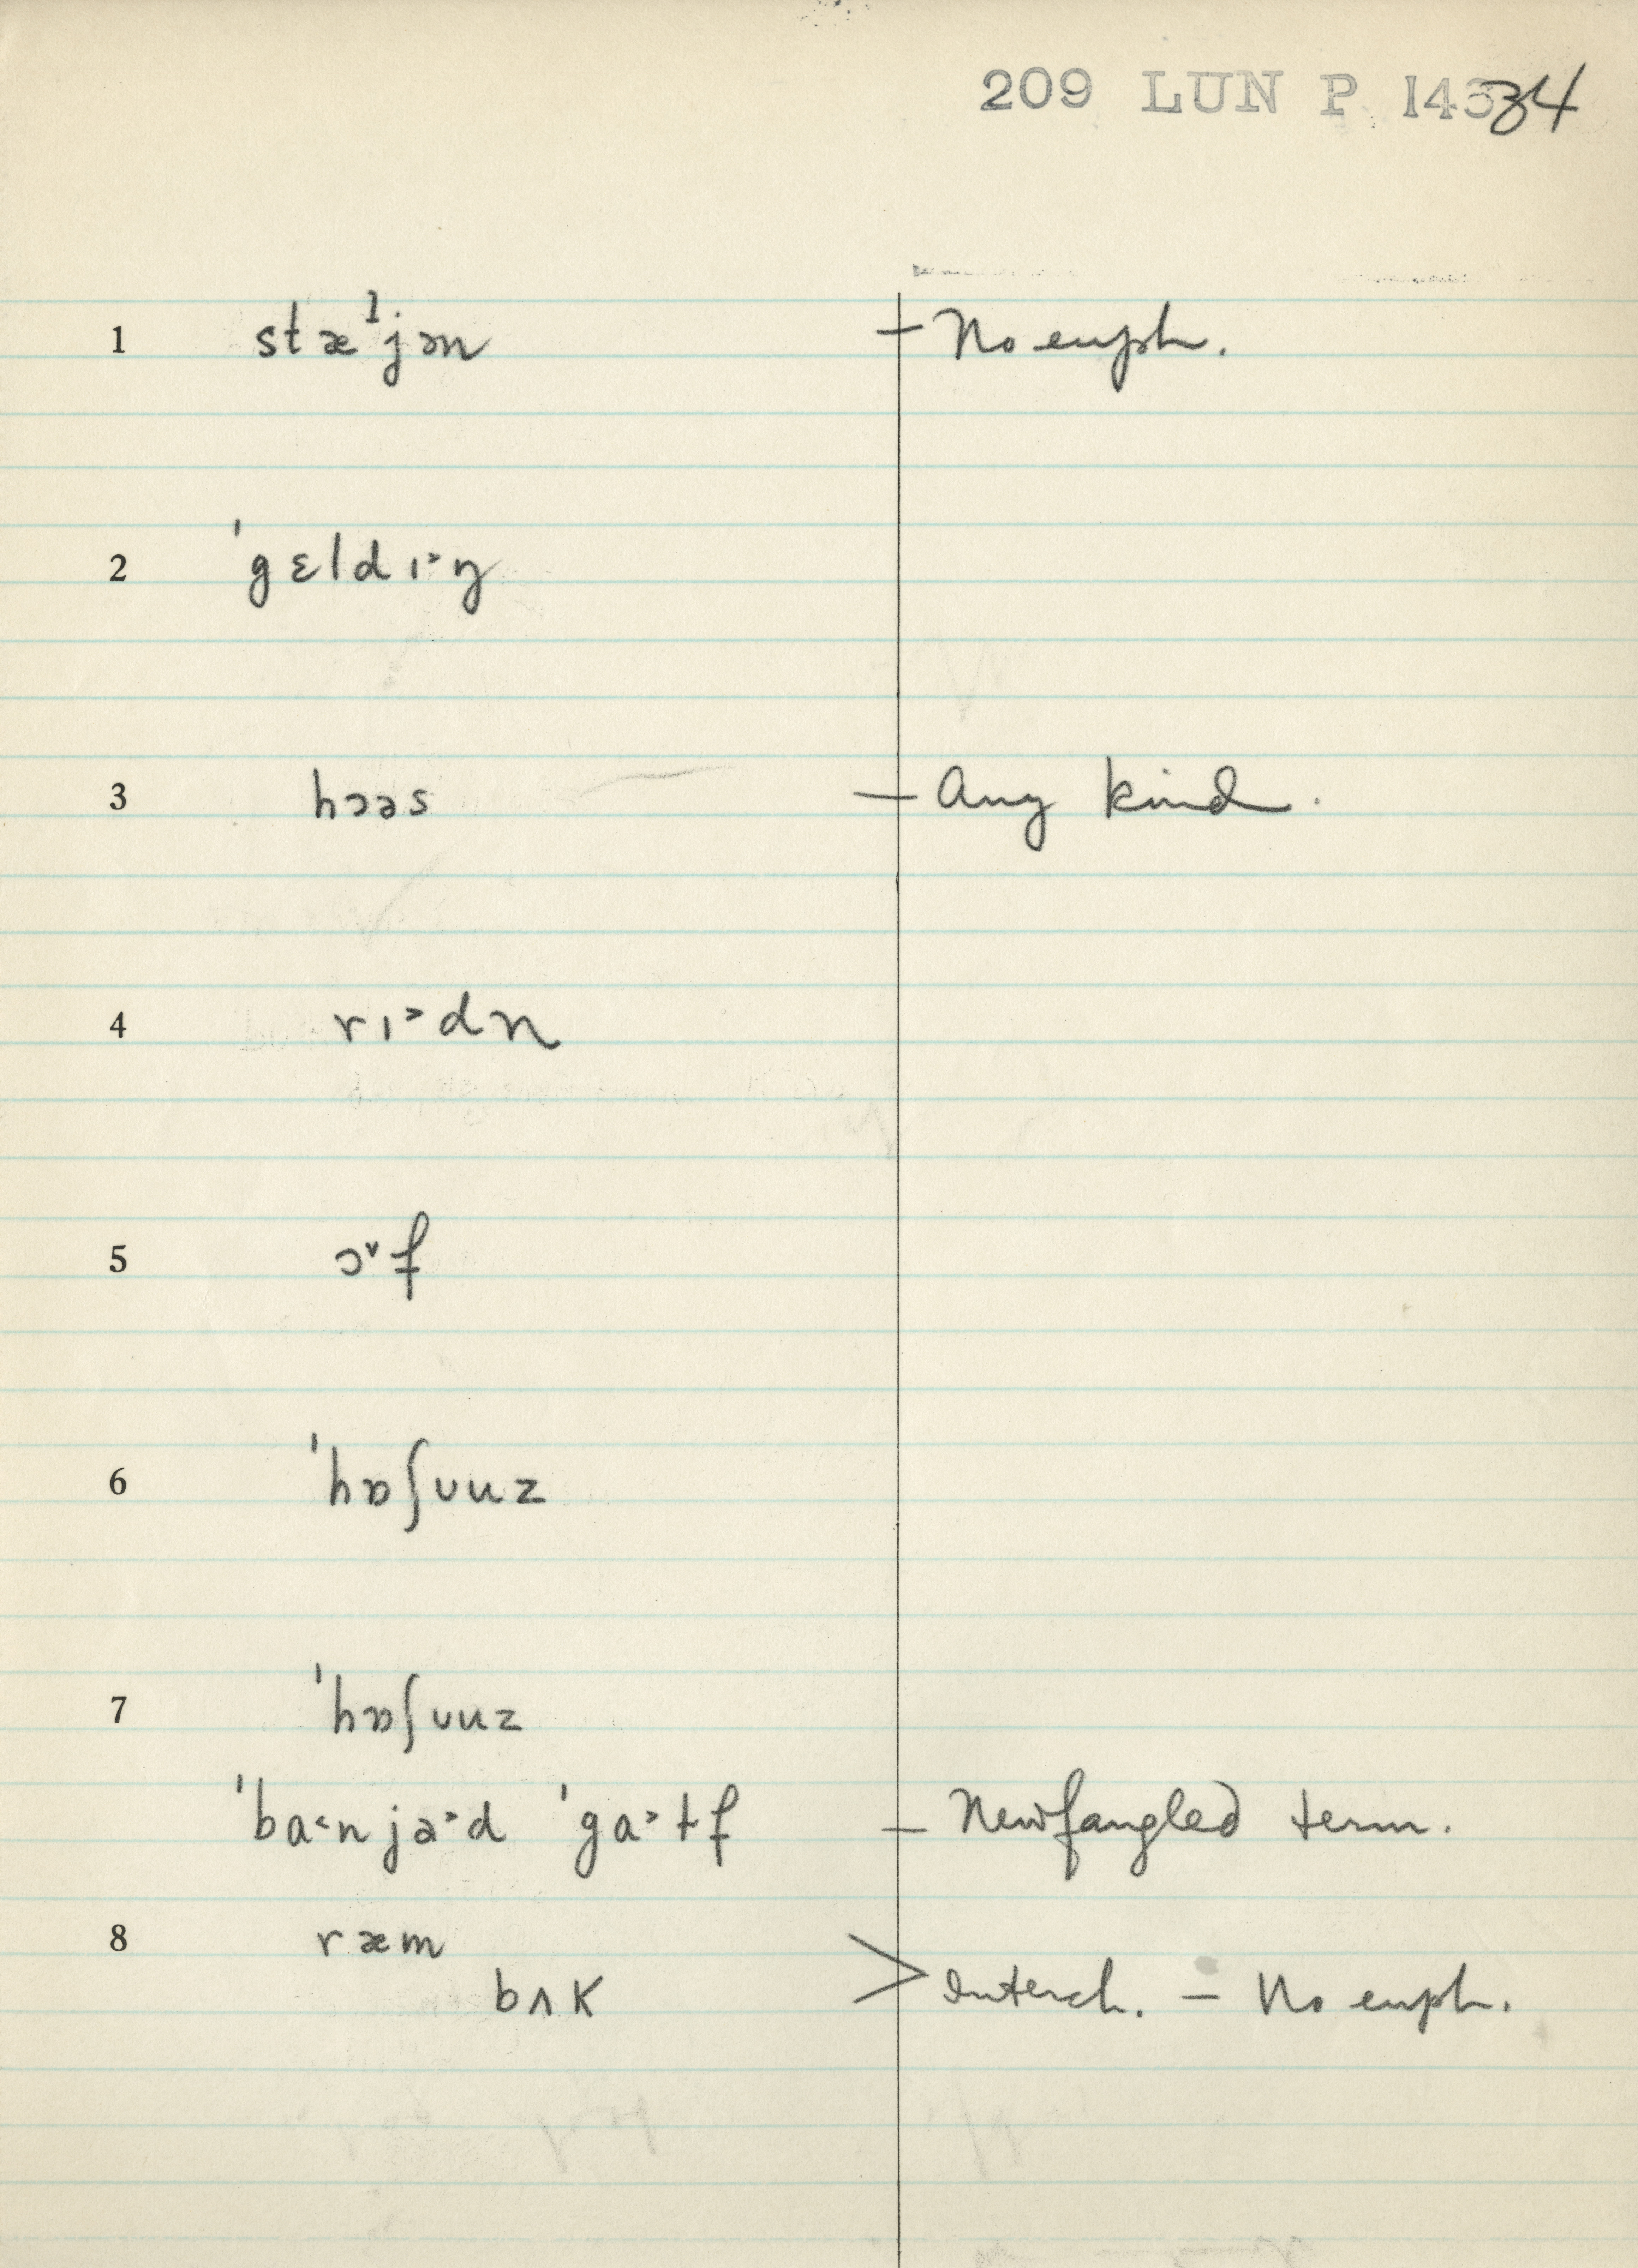 209 LUN P 14334
1 stæˈjən – No euph.
2 ˈgɛldɪ˃ŋ
3 hɔəs – Any kind.
4 rɪ˃dn
5 ɔ˅f
6 ˈhɒʃuuz
7 ˈhɒʃuuz
ˈba˂njə˃d ˈga˃tf – Newfangled term.
8 ræm
bʌk > Interch. – No euph.